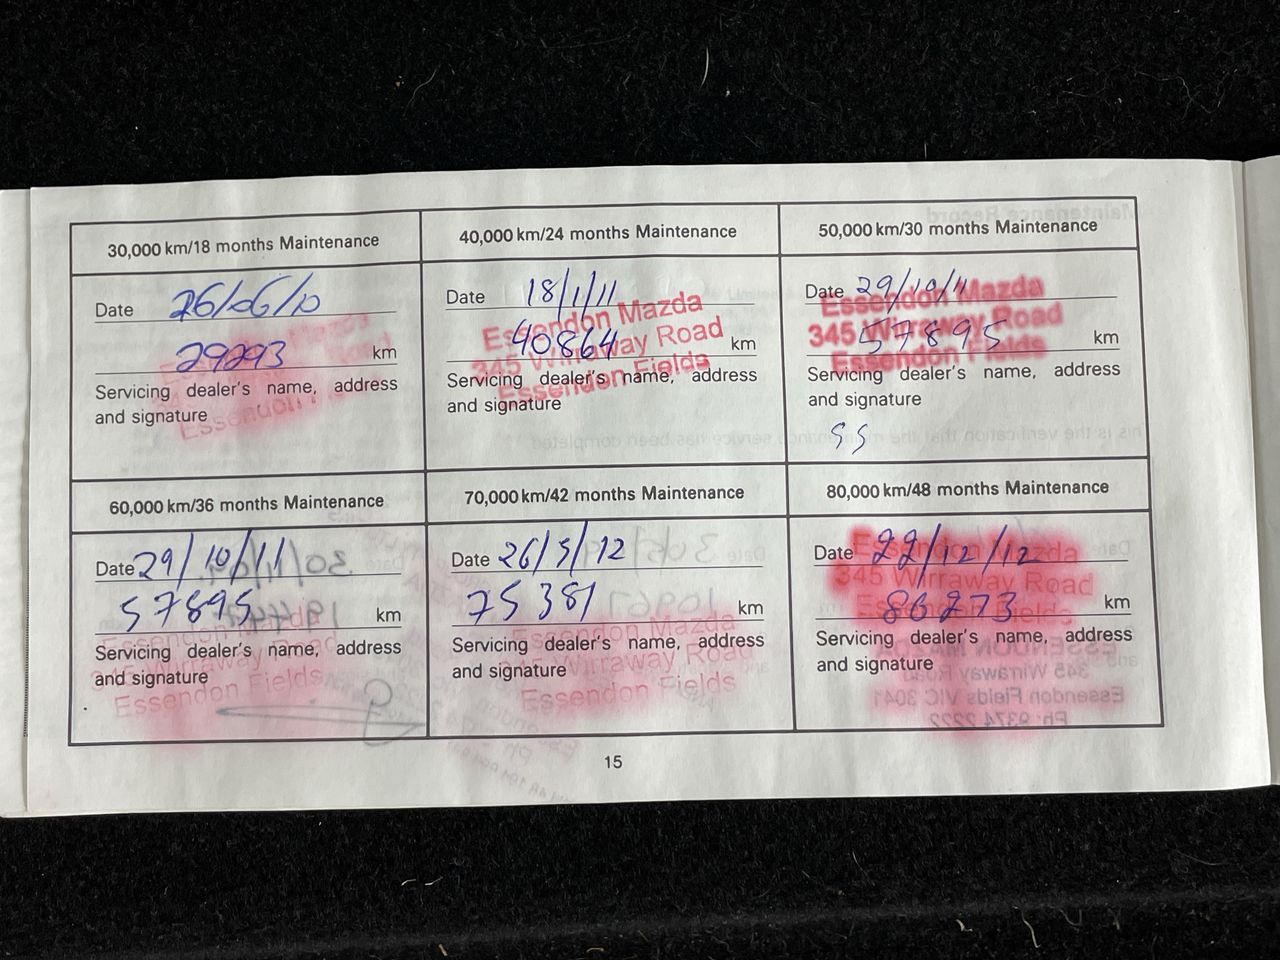 30,000 km/18 months Maintenance
Date 26/06/10
29293 km
Servicing dealer's name, address
and signature
Essendon Fields
40,000 km/24 months Maintenance
Date 18/1/11
Essendon Mazda
40864 km
345 Wirraway Road
Servicing dealer's name, address
Essendon Fields
and signature
50,000 km/30 months Maintenance
Date 29/10/11
Essendon Mazda
345 Wirraway Road
57895 km
Essendon Fields
Servicing dealer's name, address
and signature
SS
60,000 km/36 months Maintenance
Date 29/10/11
57895 km
Essendon Mazda
Servicing dealer's name, address
345 Wirraway Road
and signature
Essendon Fields
70,000 km/42 months Maintenance
Date 26/5/12
75381 km
Essendon Mazda
Servicing dealer's name, address
345 Wirraway Road
and signature
Essendon Fields
80,000 km/48 months Maintenance
Date 22/12/12
Essendon Mazda
345 Wirraway Road
86273 km
Essendon Fields
Servicing dealer's name, address
and signature
15